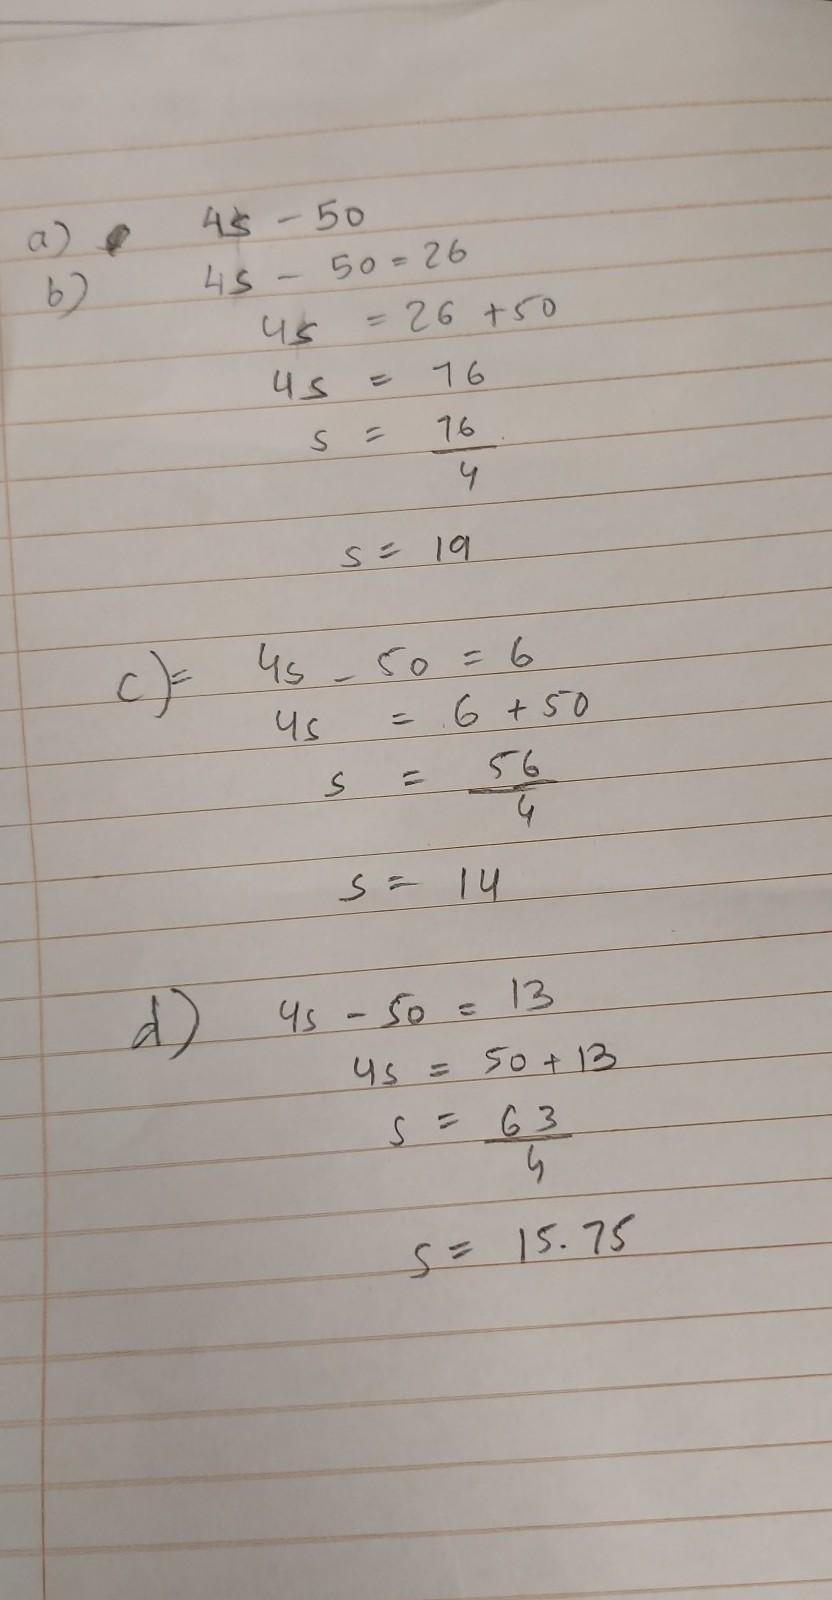 a) 4s - 50
b) 4s - 50 = 26
4s = 26 + 50
4s = 76
s = 76/4
s = 19
c) = 4s - 50 = 6
4s = 6 + 50
s = 56/4
s = 14
d) 4s - 50 = 13
4s = 50 + 13
s = 63/4
s = 15.75